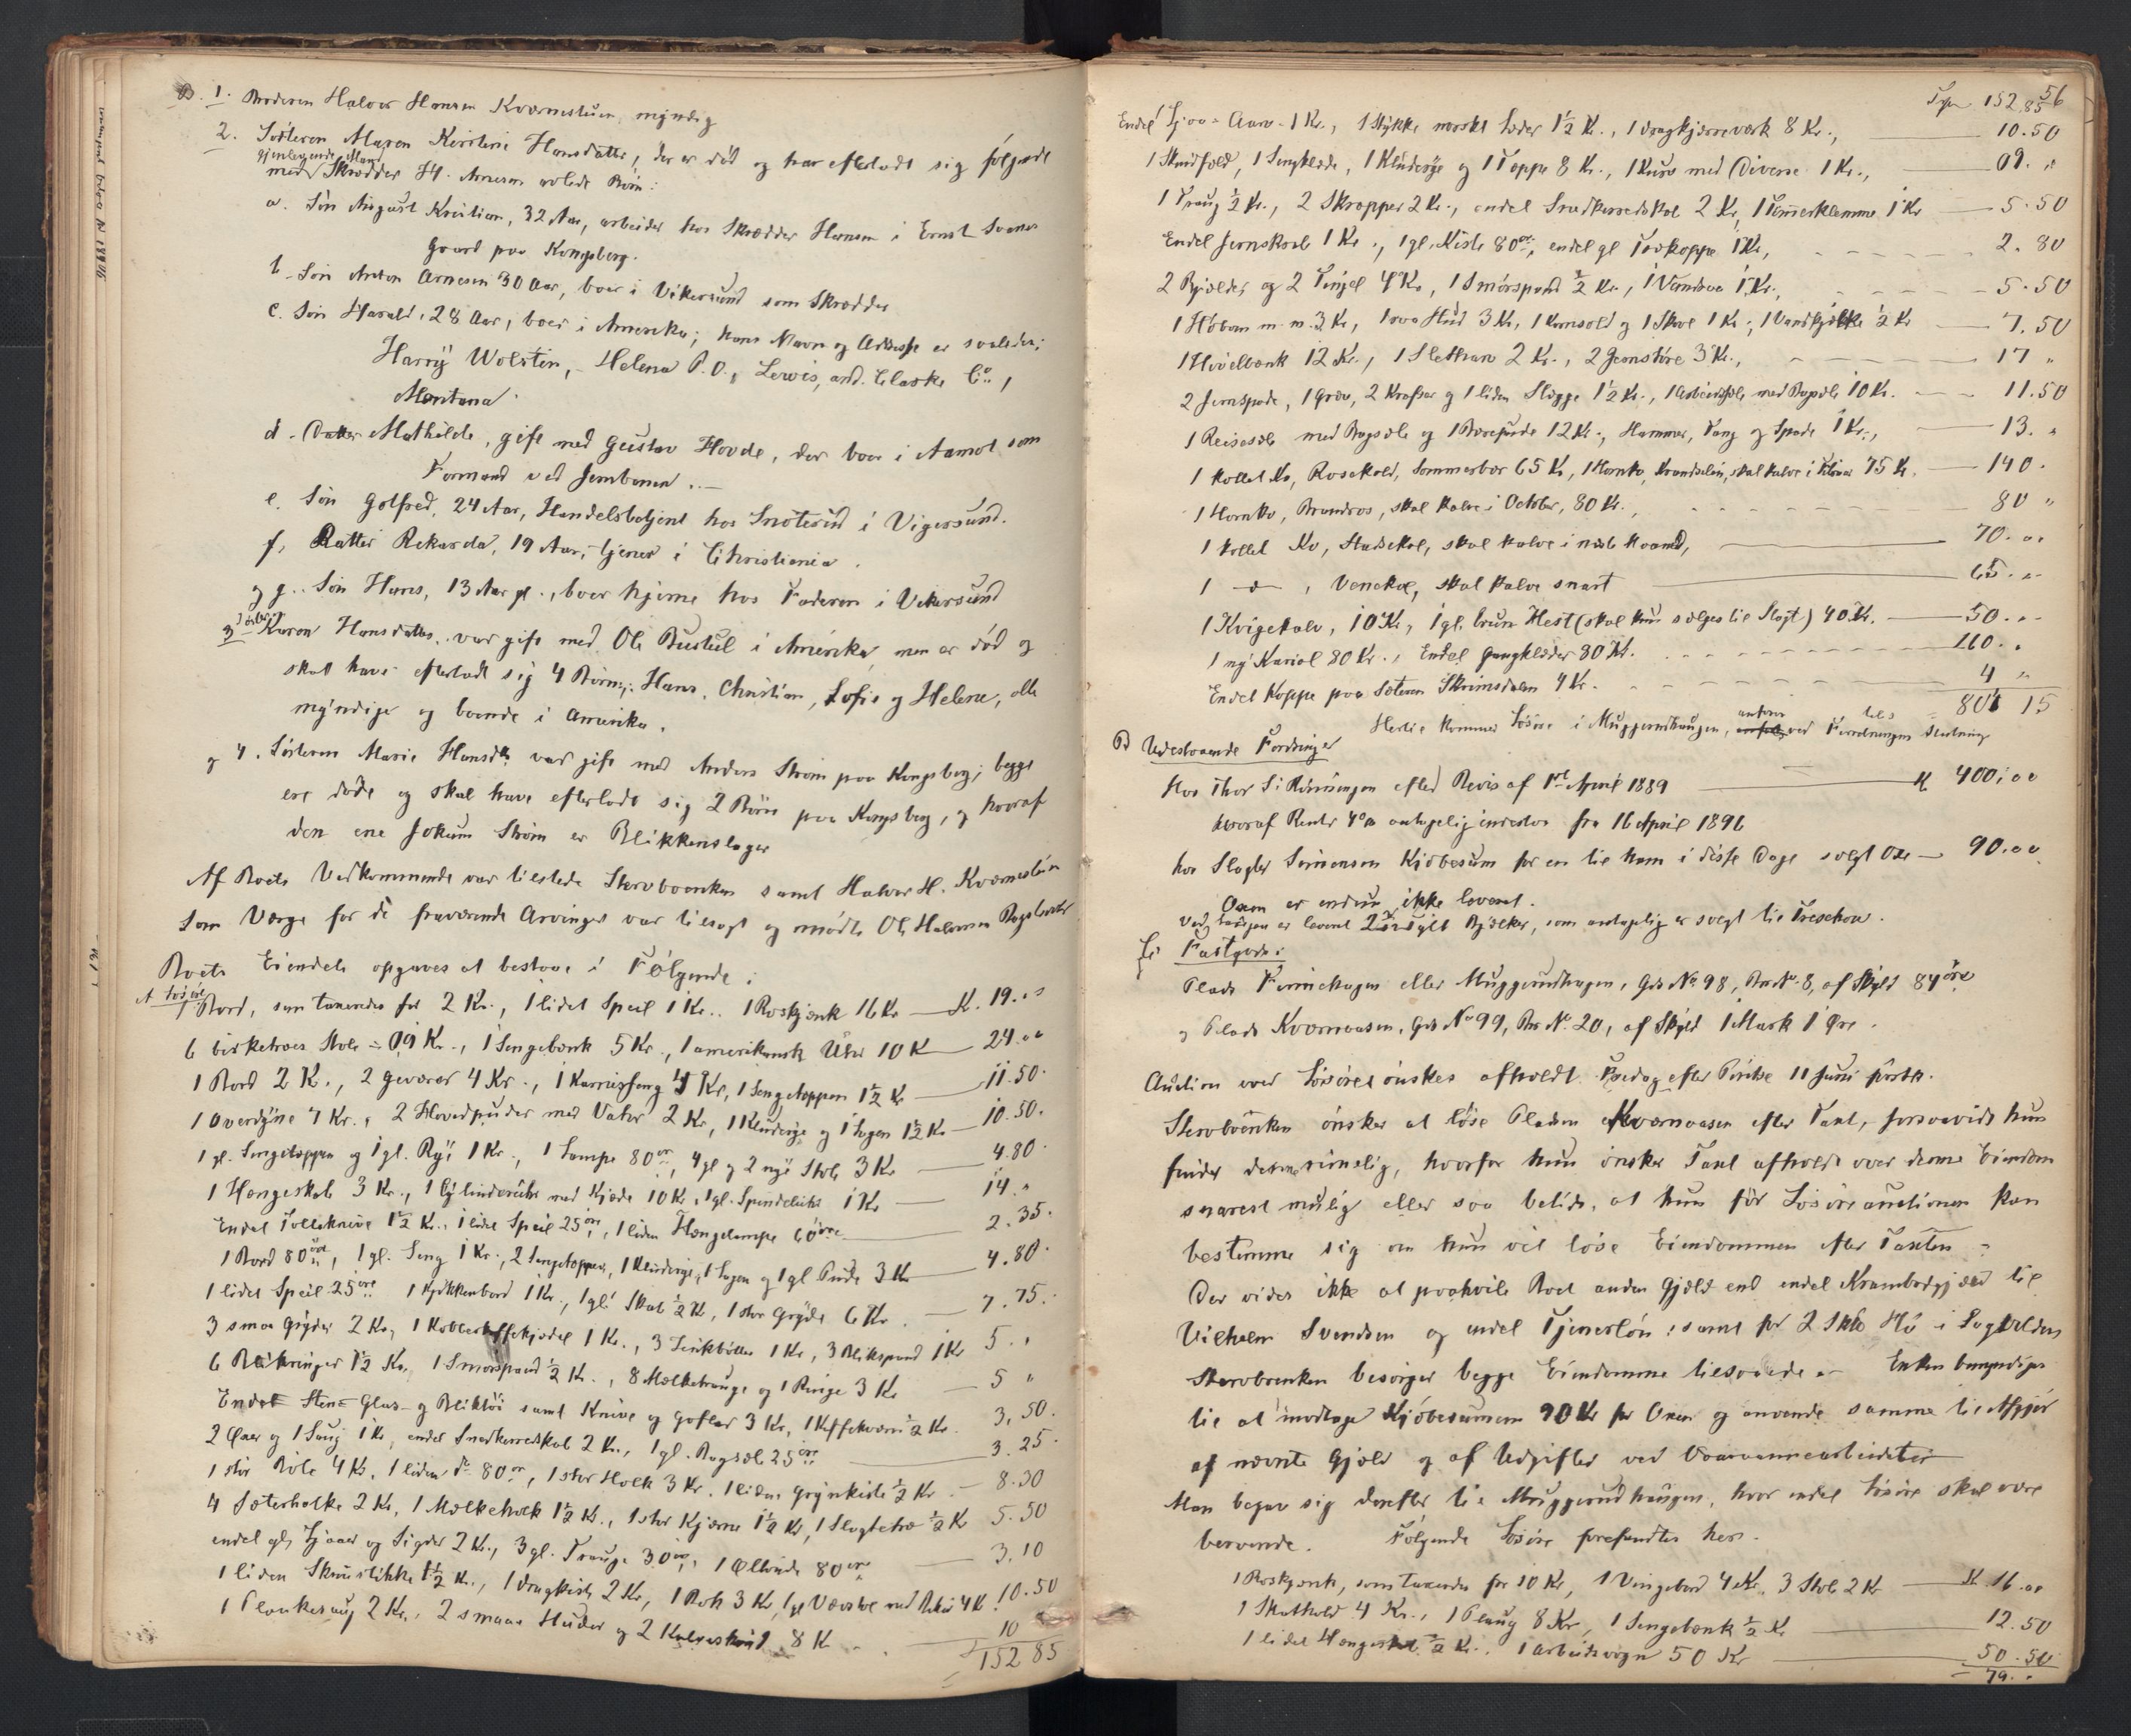 B. 1. Broderen Halvor Hansen Kværnestuen, myndig
2. Søsteren Maren Kirstine Hansdatter, der er død og har efterladt sig følgende
med gjenlevende Mand Skrædder H. Arnesen avlede Børn:
a. Søn August Kristian, 32 Aar, arbeider hos Skrædder Hansen i Ernst Svanes
Gaard paa Kongsberg.
b. Søn Anton Arnesen 30 Aar, boer i Vikersund som Skrædder
c. Søn Harald, 28 Aar, boer i Amerika; hans Navn og Adresse er saaledes:
Harry Wolstin, - Helena P.O., Lewis, and. Claske Co.,
Montana.
d. Datter Mathilde, gift med Gustav Hovde, der boer i Aamot som
Formand ved Jernbanen. —
e. Søn Golfred, 24 Aar, Handelsbetjent hos Snøterud i Vigersund.
f. Datter Rekarda, 19 Aar, tjener i Christiania.
og g. Søn Hans, 13 Aar gl., boer hjeme hos Faderen i Vikersund
3. Søster Karen Hansdatter, var gift med Ole Bustul i Amerika, men er død og
skal have efterladt sig 4 Børn: Hans, Christian, Sofie og Helene, alle
myndige og boende i Amerika.
og 4. Søsteren Marie Hansdtr var gift med Anders Strøm paa Kongsberg; begge
ere døde og skal have efterladt sig 2 Børn paa Kongsberg, og hvoraf
den ene Jokum Strøm er Blikkenslager
Af Boets Vedkommende var tilstede Stervboenken samt Halvor H. Kværnestuen
Som Værge for de fraværende Arvinger var tilsagt og mødte Ole Halvorsen
Boets Eiendele opgaves at bestaae i Følgende:
A Løsøre
1 Bord, som taxeredes for 2 Kr., 1 lidet Speil 1 Kr., 1 Roskjænk 16 Kr — K. 19. "
6 birketræes Stole = 09 Kr., 1 Sengebænk 5 Kr., 1 amerikansk Uhr 10 K — 24. "
1 Bord 2 K., 2 Geværer 4 Kr., 1 Karnisseng 4 Kr, 1 Sengetæppen 1½ Kr — 11.50.
1 Overdyne 7 Kr., 2 Hovedpuder med Vatr 2 Kr, 1 Kludrye og 1 Lagen 1½ Kr — 10.50.
1 gl. Sengetæppen og 1 gl. Rye 1 Kr., 1 Lampe 80 ør, 4 gl og 2 nye Stole 3 Kr — 4.80.
1 Hængeskab 3 Kr., 1 Cylinderuhr med Kjæde 10 Kr, 1 gl. Spindeluhr 1 Kr — 14. "
Endel Tolleknive 1½ Kr., 1 lidet Speil 25 ør, 1 liden Hængelampe 60 øre — 2.35.
1 Bord 80 øre, 1 gl. Seng 1 Kr., 2 Sengetæppen, 1 Kludrye, 1 Lagen og 1 gl Pude 3 Kr — 4.80.
1 lidet Speil 25 øre 1 Kjøkkenbord 1 Kr., 1 gl. Skab ½ Kr, 1 stor Gryde 6 Kr. — 7.75.
3 smaa Gryder 2 Kr, 1 Kobberkaffekjedel 1 Kr., 3 Sinkbøtter 1 Kr, 3 Blikspand 1 Kr 5. "
6 Blikringer 1½ Kr., 1 Smørspand ½ K., 8 Melketrauge og 1 Ringe 3 Kr — 5 "
Endel Sten= Glas- og Bliktøi samt Knive og Gafler 3 Kr, 1 Kaffekværn ½ Kr. 3,50.
2 Øxer og 1 Saug 1 Kr, endel Snedkerredskab 2 Kr., 1 gl. Bogsele 25 øre — 3.25.
1 stor Bøle 4 Kr, 1 liden do 80 ør, 1 stor Holk 3 Kr. 1 liden Grynkiste ½ Kr. — 8.30
4 Sæterholke 2 Kr, 1 Melkeholk 1½ Kr., 1 stor Kjærne 1½ Kr, 1 Slagtetræ ½ Kr 5.50
endel gl. Ljaaer og Sigder 2 Kr., 3 gl. Trauge 30 ør, 1 Øltønde 80 øre — 3.10
1 liden Skruestikke 1½ Kr., 1 Dragkiste 2 Kr, 1 Rok 3 Kr, 1 gl Vævstol med Rekv 4 K. 10.50
1 Plankesaug 2 Kr., 2 smaae Huder og 2 Kalveskind 8 K. — 10
152 85
56
Trpr 152.85
Endel Ljaa- Aarv- 1 Kr., 1 Stykke norskt Læder 1½ Kr., 1 Dragkjærreværk 8 Kr., — 10.50
1 Skindfeld, 1 Sengklæde, 1 Kludrye og 1 Tæppe 8 Kr., 1 Kurv med Diverse 1 Kr., — 09. "
1 Traug ½ Kr., 2 Skræpper 2 Kr., endel Snedkerredskab 2 Kr, 1 Tømmerklemme 1 Kr — 5.50
Endel Jernskrab 1 Kr., 1 gl. Kiste 80 ør, endel gl Trækoppe 1 Kr, — 2.80
2 Bjelder og 2 Tingel 4 Kr, 1 Smørspand ½ Kr., 1 Vandsaa 1 Kr., — 5.50
1 Høbom m. m. 3 Kr, 1 raa Hud 3 Kr, 1 Kornsold og 1 Skovl 1 Kr., 1 Vandkjælke ½ Kr — 7.50
1 Høvelbænk 12 Kr., 1 Slethøvl 2 Kr., 2 Jernstøre 3 Kr., — 17 "
2 Jernspade, 1 Grev, 2 Krafser og 1 liden Slægge 1½ Kr., 1 Arbeidssele med Bogsele 10 Kr. — 11.50
1 Reisesele med Bogsele og 1 Bærepude 12 Kr., Hammer, Tang og Spade 1 Kr., — 13. "
1 kollet Ko, Rosekold, Sommerbær 65 Kr, 1 Hornko, Krandselin, skal kalve i Februar 75 Kr. — 140.
1 Hornko, Brandros, skal kalve i October, 80 Kr., — 80 "
1 kollet Ko, Stadsekol, skal kalve i næste Maaned, — 70. "
1 -"- , Venekol, skal kalve snart — 65. "
1 Kvigekalv, 10 Kr, 1 gl. brun Hest (skal kun sælges til Slagt) 40 Kr. — 50. "
1 ny Kariol 80 Kr., Endel Gangklæder 80 Kr. — 160. "
Endel Koppe paa Sæteren Skrimsdalen 4 Kr. — 4 "
804 15
Hertil kommer Løsøre i Muggerudhaugen, anføres ved Forretningens Slutning
B Udestaaende Fordringer
Hos Thor S. Rønningen efter Bevis af 1ste April 1889 — K 400,00
hvoraf Renter 4% antagelig indestaar fra 16 April 1896
hos Slagter Simonsen Kjøbesum for en til ham i disse Dage solgt Oxe — 90.00
Oxen er endnu ikke leveret.
Ved Laagen er leveret 2 Bjelker, som antagelig er solgt til Treschow.
C. Fastgods:
Plads Finnehagen eller Muggerudhagen, Grds No 98, Brs No 8, af Skyld 84 øre
og Plads Kværnaasen, Grds No 99, Brs No. 20, af Skyld 1 Mark 1 Øre.
Auction over Løsøret ønskes afholdt Fredag efter Pintse 11 Juni førstk.
Stervboenken ønsker at løse Pladsen Kværnaasen efter Taxt, forsaavidt hun
finder denne rimelig, hvorfor hun ønsker Taxt afholdt over denne Eiendom
snarest mulig eller saa betids, at hun før Løsøreauctionen kan
bestemme sig om hun vil løse Eiendommen efter Taxten.
Der vides ikke at paahvile Boet anden Gjæld end endel Krambodgjæld til
Vilhelm Svendsen og endel Tjenerløn: samt for 2 Skb Hø i
Stervboenken besørger begge Eiendomme tilsaaede. — Enken bemyndiges
til at modtage Kjøbesummen 90 Kr for Oxen og anvende samme til Afgjør
af nævnte Gjæld og af Udgifter ved Vaaraannearbeidet
Man begav sig derefter til Muggerudhaugen, hvor endel Løsøre skal være
beroende. Følgende Løsøre forefandtes her:
1 Roskjænk, som taxeredes for 10 Kr, 1 Vingebord 4 Kr, 3 Stole 2 Kr — K. 16.00
1 Skathold 4 Kr., 1 Plaug 8 Kr, 1 Sengebænk ½ Kr — 12.50
1 lidet Hængeskab ½ Kr., 1 Arbeidsvogn 50 Kr — 50.50
79. "